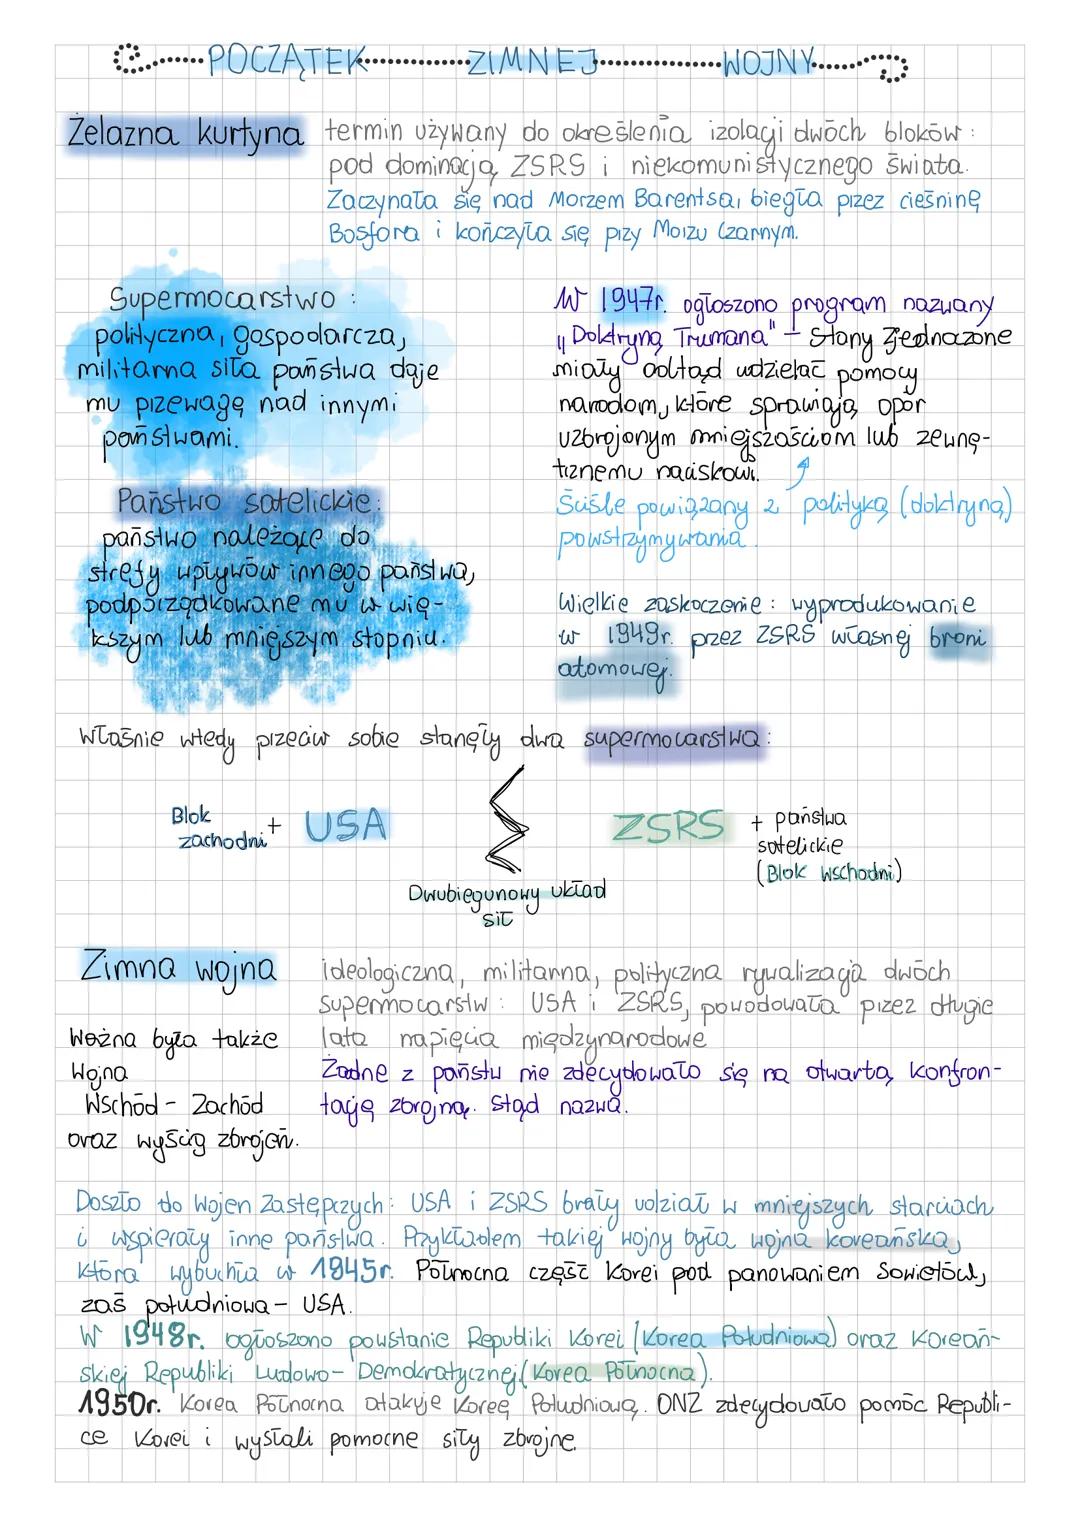 POCZĄTEK ZIMNEJ WOJNY
Żelazna kurtyna
termin używany do określenia izolacji dwóch bloków:
pod dominacją ZSRS i niekomunistycznego świata.
Zaczynała się nad Morzem Barentsa, biegła przez cieśninę
Bosfora i kończyła się przy Morzu Czarnym.
Supermocarstwo:
polityczna, gospodarcza,
militarna siła państwa daje
mu przewagę nad innymi
państwami.
Państwo satelickie:
państwo należące do
strefy wpływów innego państwa,
podporządkowane mu w wię-
kszym lub mniejszym stopniu.
W 1947r. ogłoszono program nazwany
"Doktryną Trumana" - Stany Zjednoczone
miały odtąd udzielać pomocy
narodom, które sprawiają opór
uzbrojonym mniejszościom lub zewnę-
trznemu naciskowi.
Ściśle powiązany z polityką (doktryną)
powstrzymywania.
Wielkie zaskoczenie: wyprodukowanie
w 1949r. przez ZSRS własnej broni
atomowej.
Właśnie wtedy przeciw sobie stanęły dwa supermocarstwa:
Blok
zachodni + USA
ZSRS + państwa
satelickie
(Blok wschodni)
Dwubiegunowy układ
sił
Zimna wojna
ideologiczna, militarna, polityczna rywalizacja dwóch
supermocarstw: USA i ZSRS, powodowała przez długie
lata napięcia międzynarodowe
Żadne z państw nie zdecydowało się na otwartą konfron-
tację zbrojną. Stąd nazwa.
Ważna była także
Wojna
Wschód - Zachód
oraz wyścig zbrojeń.
Doszło do Wojen Zastępczych: USA i ZSRS brały udział w mniejszych starciach
i wspierały inne państwa. Przykładem takiej wojny była wojna koreańska,
która wybuchła w 1945r. Północna część Korei pod panowaniem Sowietów,
zaś południowa - USA.
W 1948r. ogłoszono powstanie Republiki Korei (Korea Południowa) oraz Koreań-
skiej Republiki Ludowo-Demokratycznej (Korea Północna).
1950r. Korea Północna atakuje Koreę Południową. ONZ zdecydowało pomóc Republi-
ce Korei i wysłali pomocne siły zbrojne.